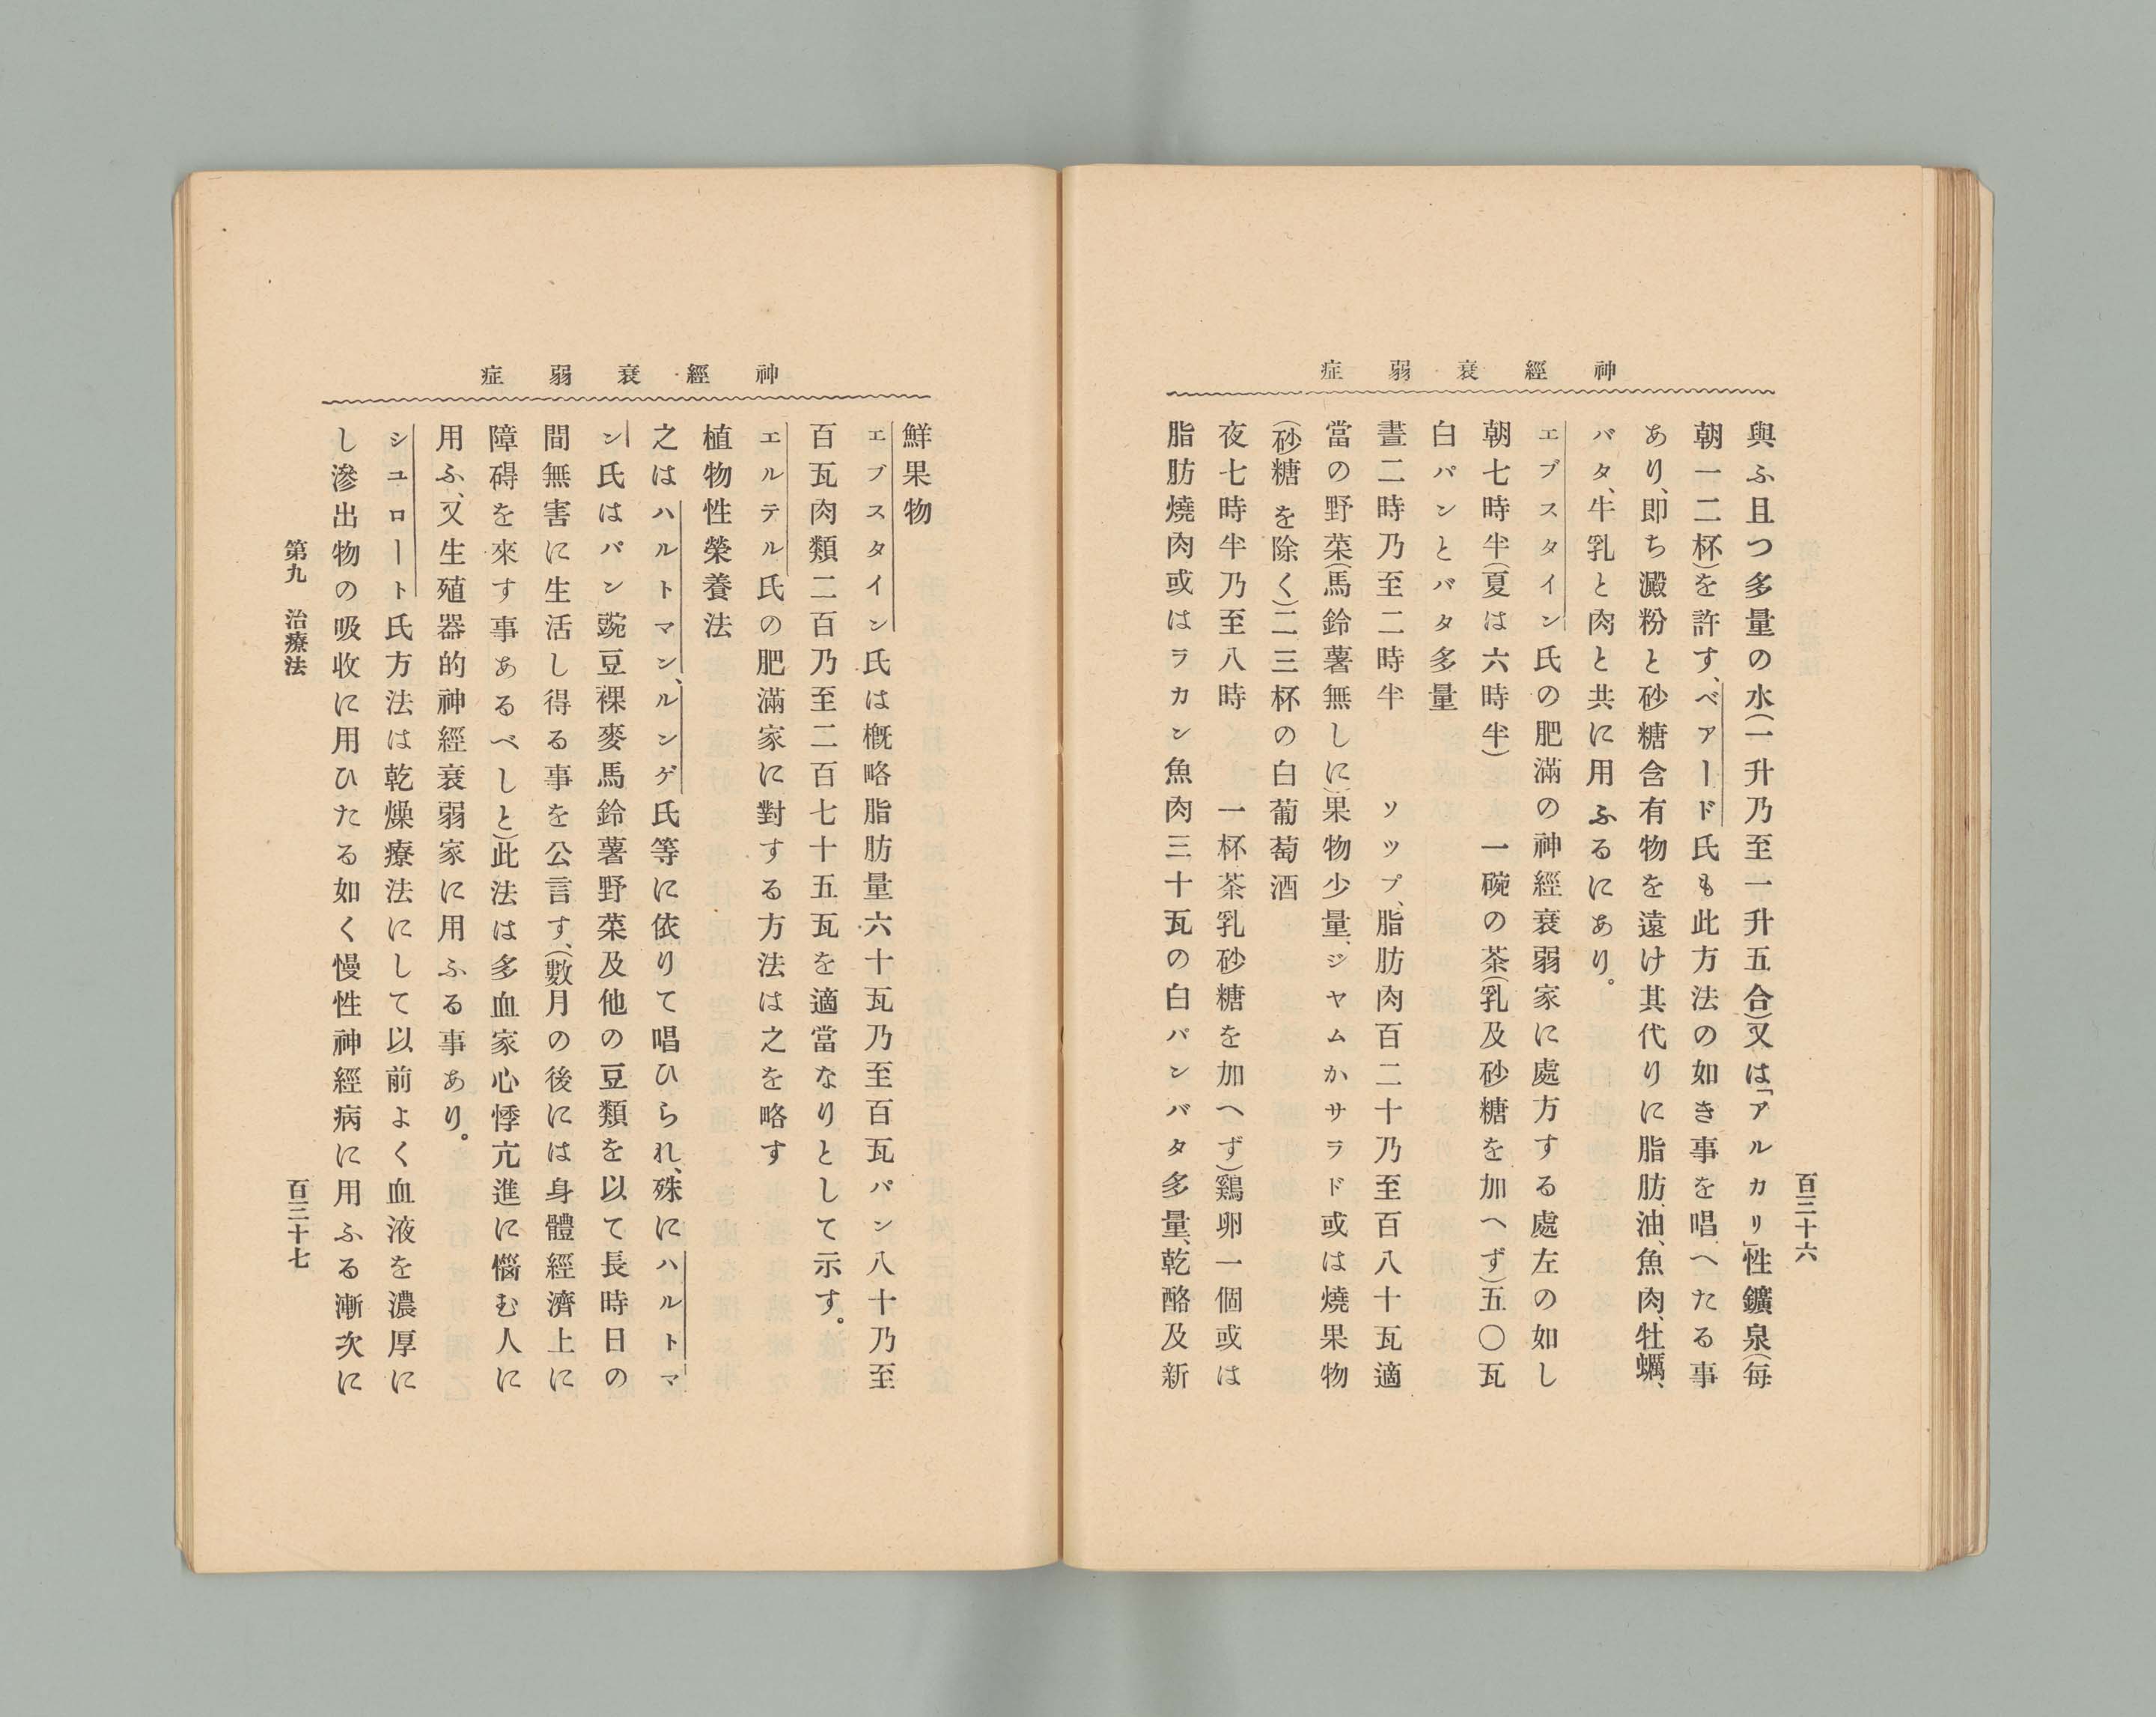 神經衰弱症
百三十六
與ふ且つ多量の水(一升乃至一升五合)又は「アルカリ」性鑛泉(毎
朝一二杯)を許す、ベアード氏も此方法の如き事を唱へたる事
あり、即ち澱粉と砂糖含有物を遠け其代りに脂肪、油、魚肉、牡蠣、
バタ、牛乳と肉と共に用ふるにあり。
エブスタイン氏の肥滿の神經衰弱家に處方する處左の如し
朝七時半(夏は六時半)　一碗の茶(乳及砂糖を加へず)五〇瓦
白パンとバタ多量
晝二時乃至二時半　ソツプ、脂肪肉百二十乃至百八十瓦適
當の野菜(馬鈴薯無しに)果物少量、ジヤムかサラド或は燒果物
(砂糖を除く)二三杯の白葡萄酒
夜七時半乃至八時　一杯茶乳砂糖を加へず)鷄卵一個或は
脂肪燒肉或はラカン魚肉三十瓦の白パンバタ多量、乾酪及新
神經衰弱症
鮮果物
エブスタイン氏は概略脂肪量六十瓦乃至百瓦パン八十乃至
百瓦肉類二百乃至二百七十五瓦を適當なりとして示す。
エルテル氏の肥滿家に對する方法は之を略す
植物性榮養法
之はハルトマン、ルンゲ氏等に依りて唱ひられ、殊にハルトマ
ン氏はパン豌豆裸麥馬鈴薯野菜及他の豆類を以て長時日の
間無害に生活し得る事を公言す、(數月の後には身體經濟上に
障碍を來す事あるべしと)此法は多血家心悸亢進に惱む人に
用ふ、又生殖器的神經衰弱家に用ふる事あり。
シユロート氏方法は乾燥療法にして以前よく血液を濃厚に
し滲出物の吸收に用ひたる如く慢性神經病に用ふる漸次に
第九　治療法
百三十七